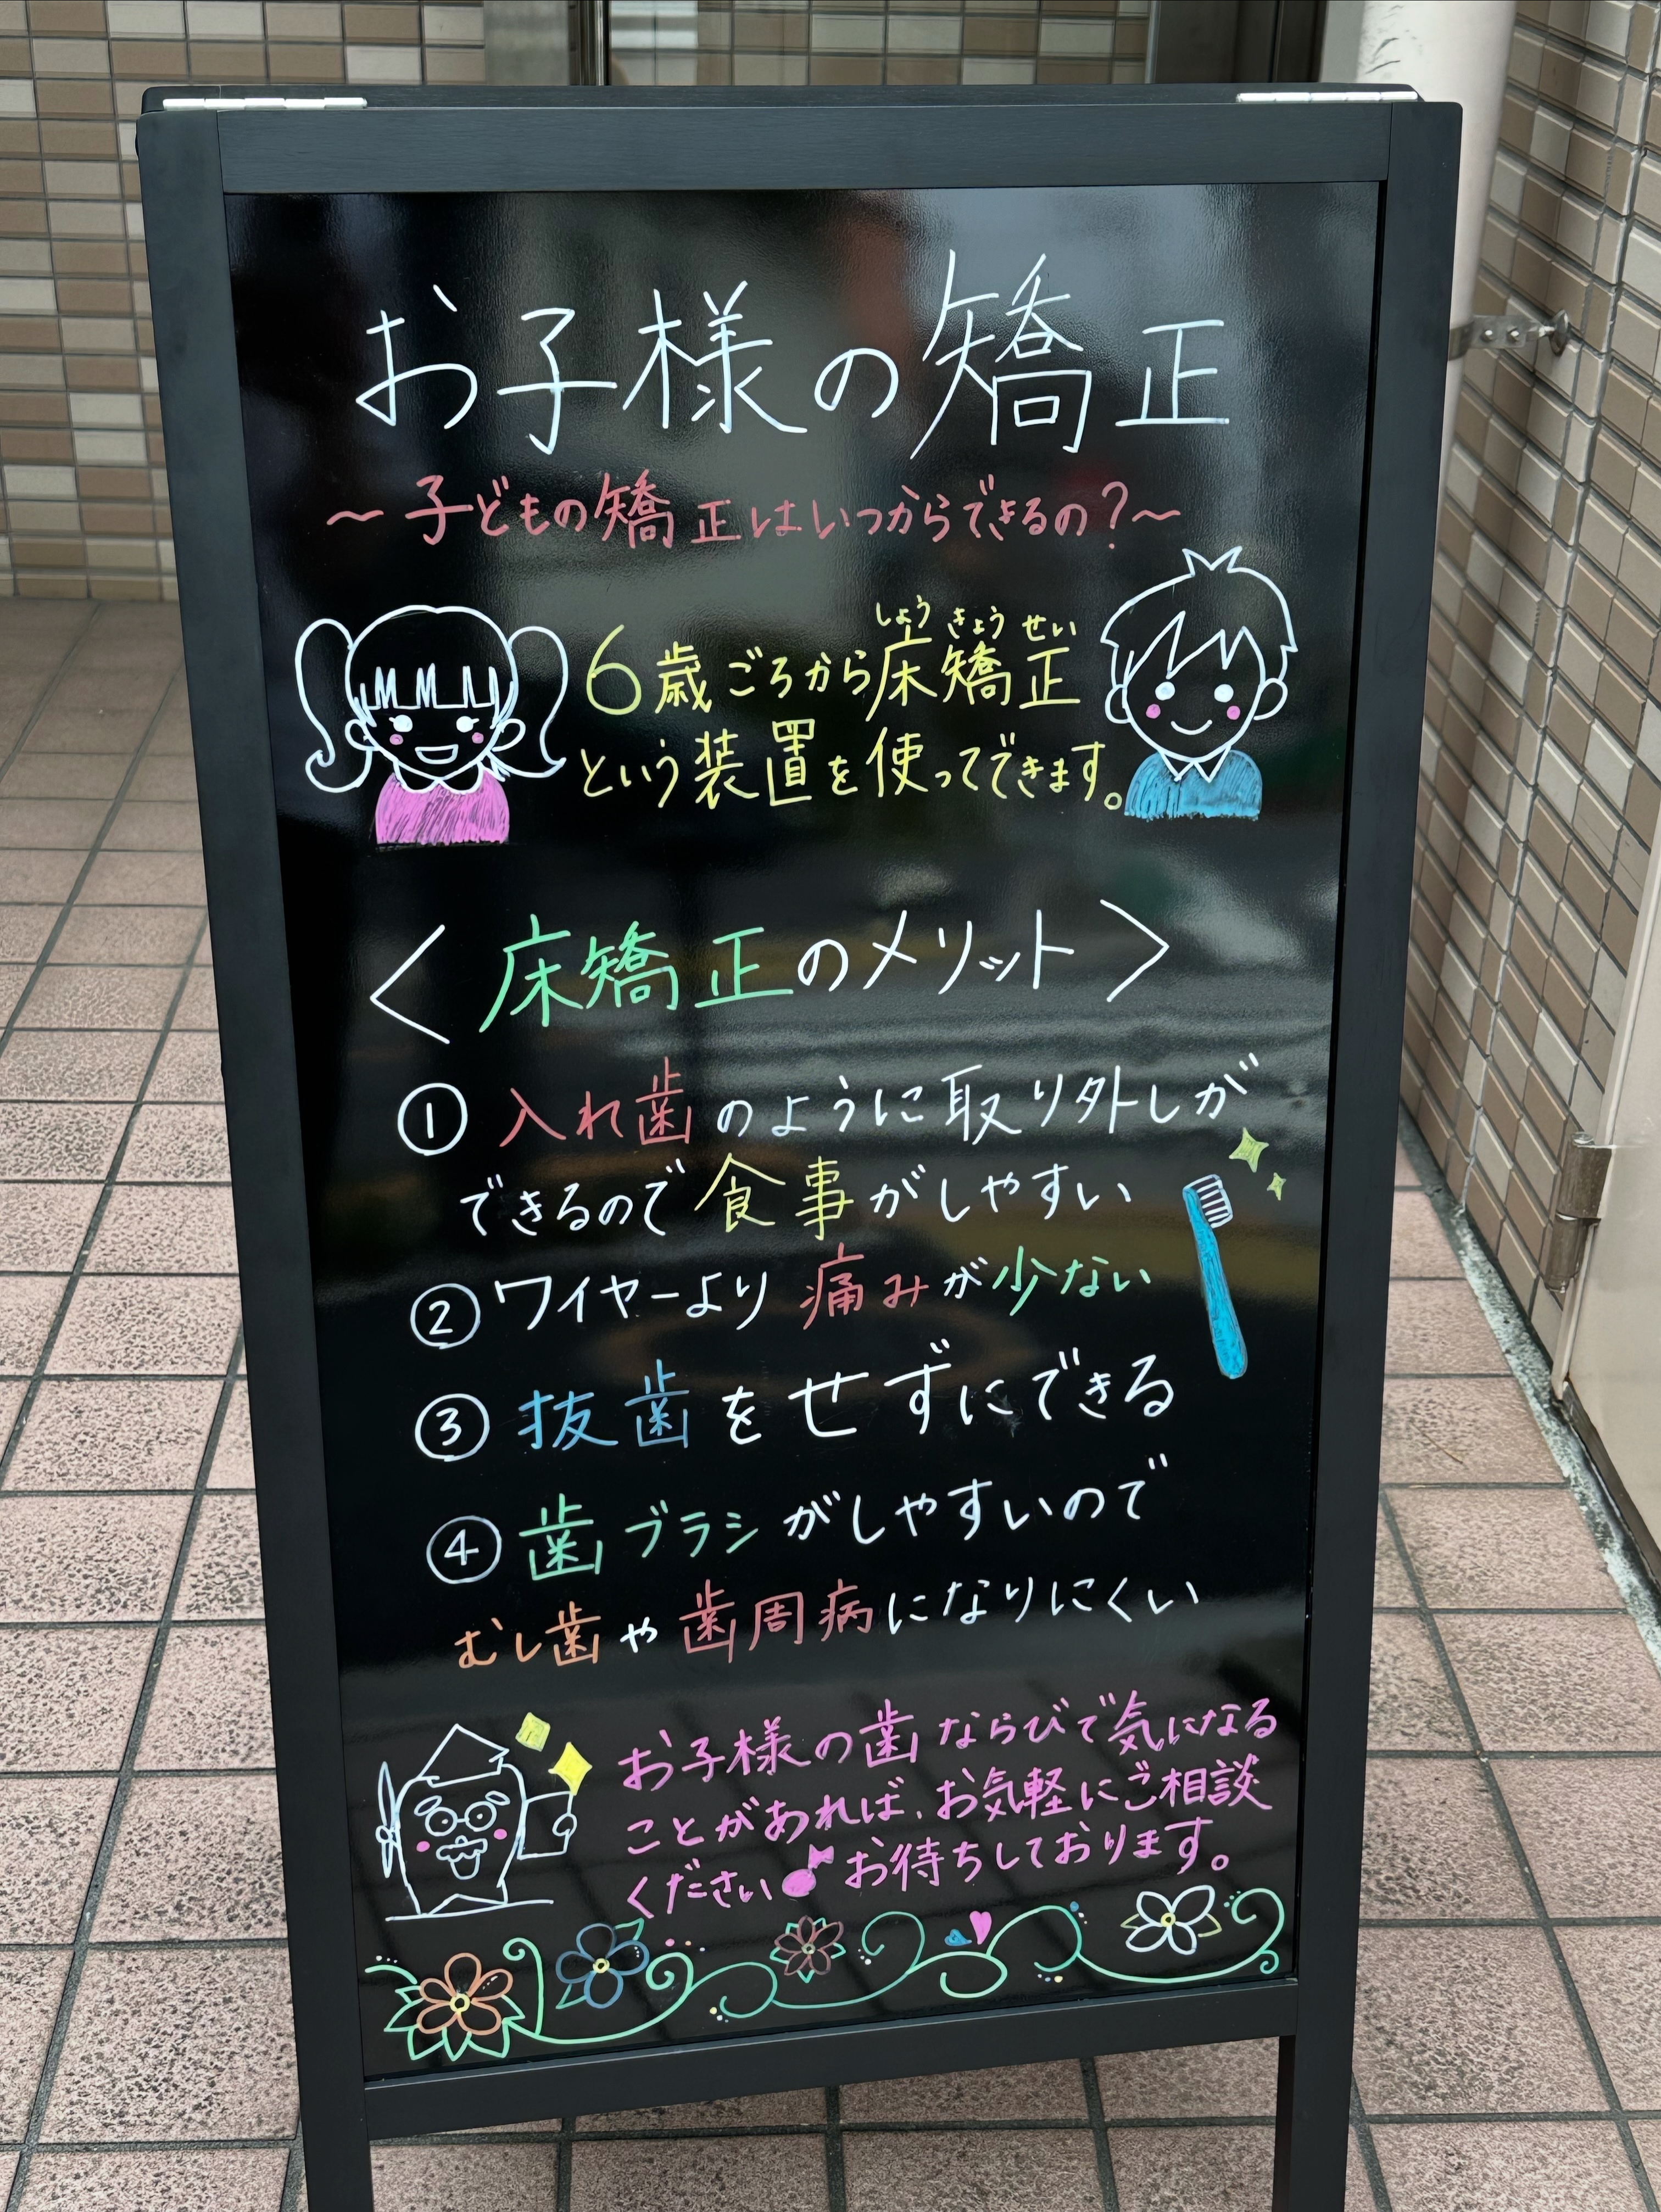 お子様の矯正
～子どもの矯正はいつからできるの？～
しょうきょうせい
6歳ごろから床矯正
という装置を使ってできます。
＜床矯正のメリット＞
①入れ歯のように取り外しが
できるので食事がしやすい
②ワイヤーより痛みが少ない
③抜歯をせずにできる
④歯ブラシがしやすいので
むし歯や歯周病になりにくい
お子様の歯ならびで気になる
ことがあれば、お気軽にご相談
ください♪お待ちしております。